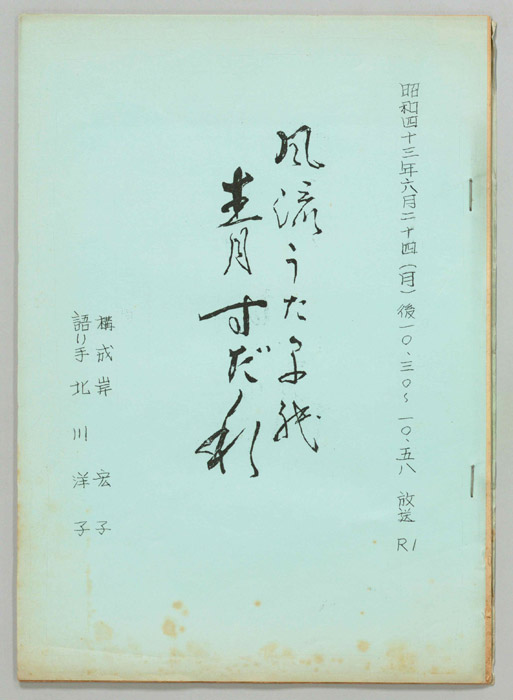 昭和四十三年六月二十四(月)後一〇、三〇〜一〇、五八 放送 R1
風流うた草紙
青すだれ
構成 岸 宏子
語り手 北川洋子